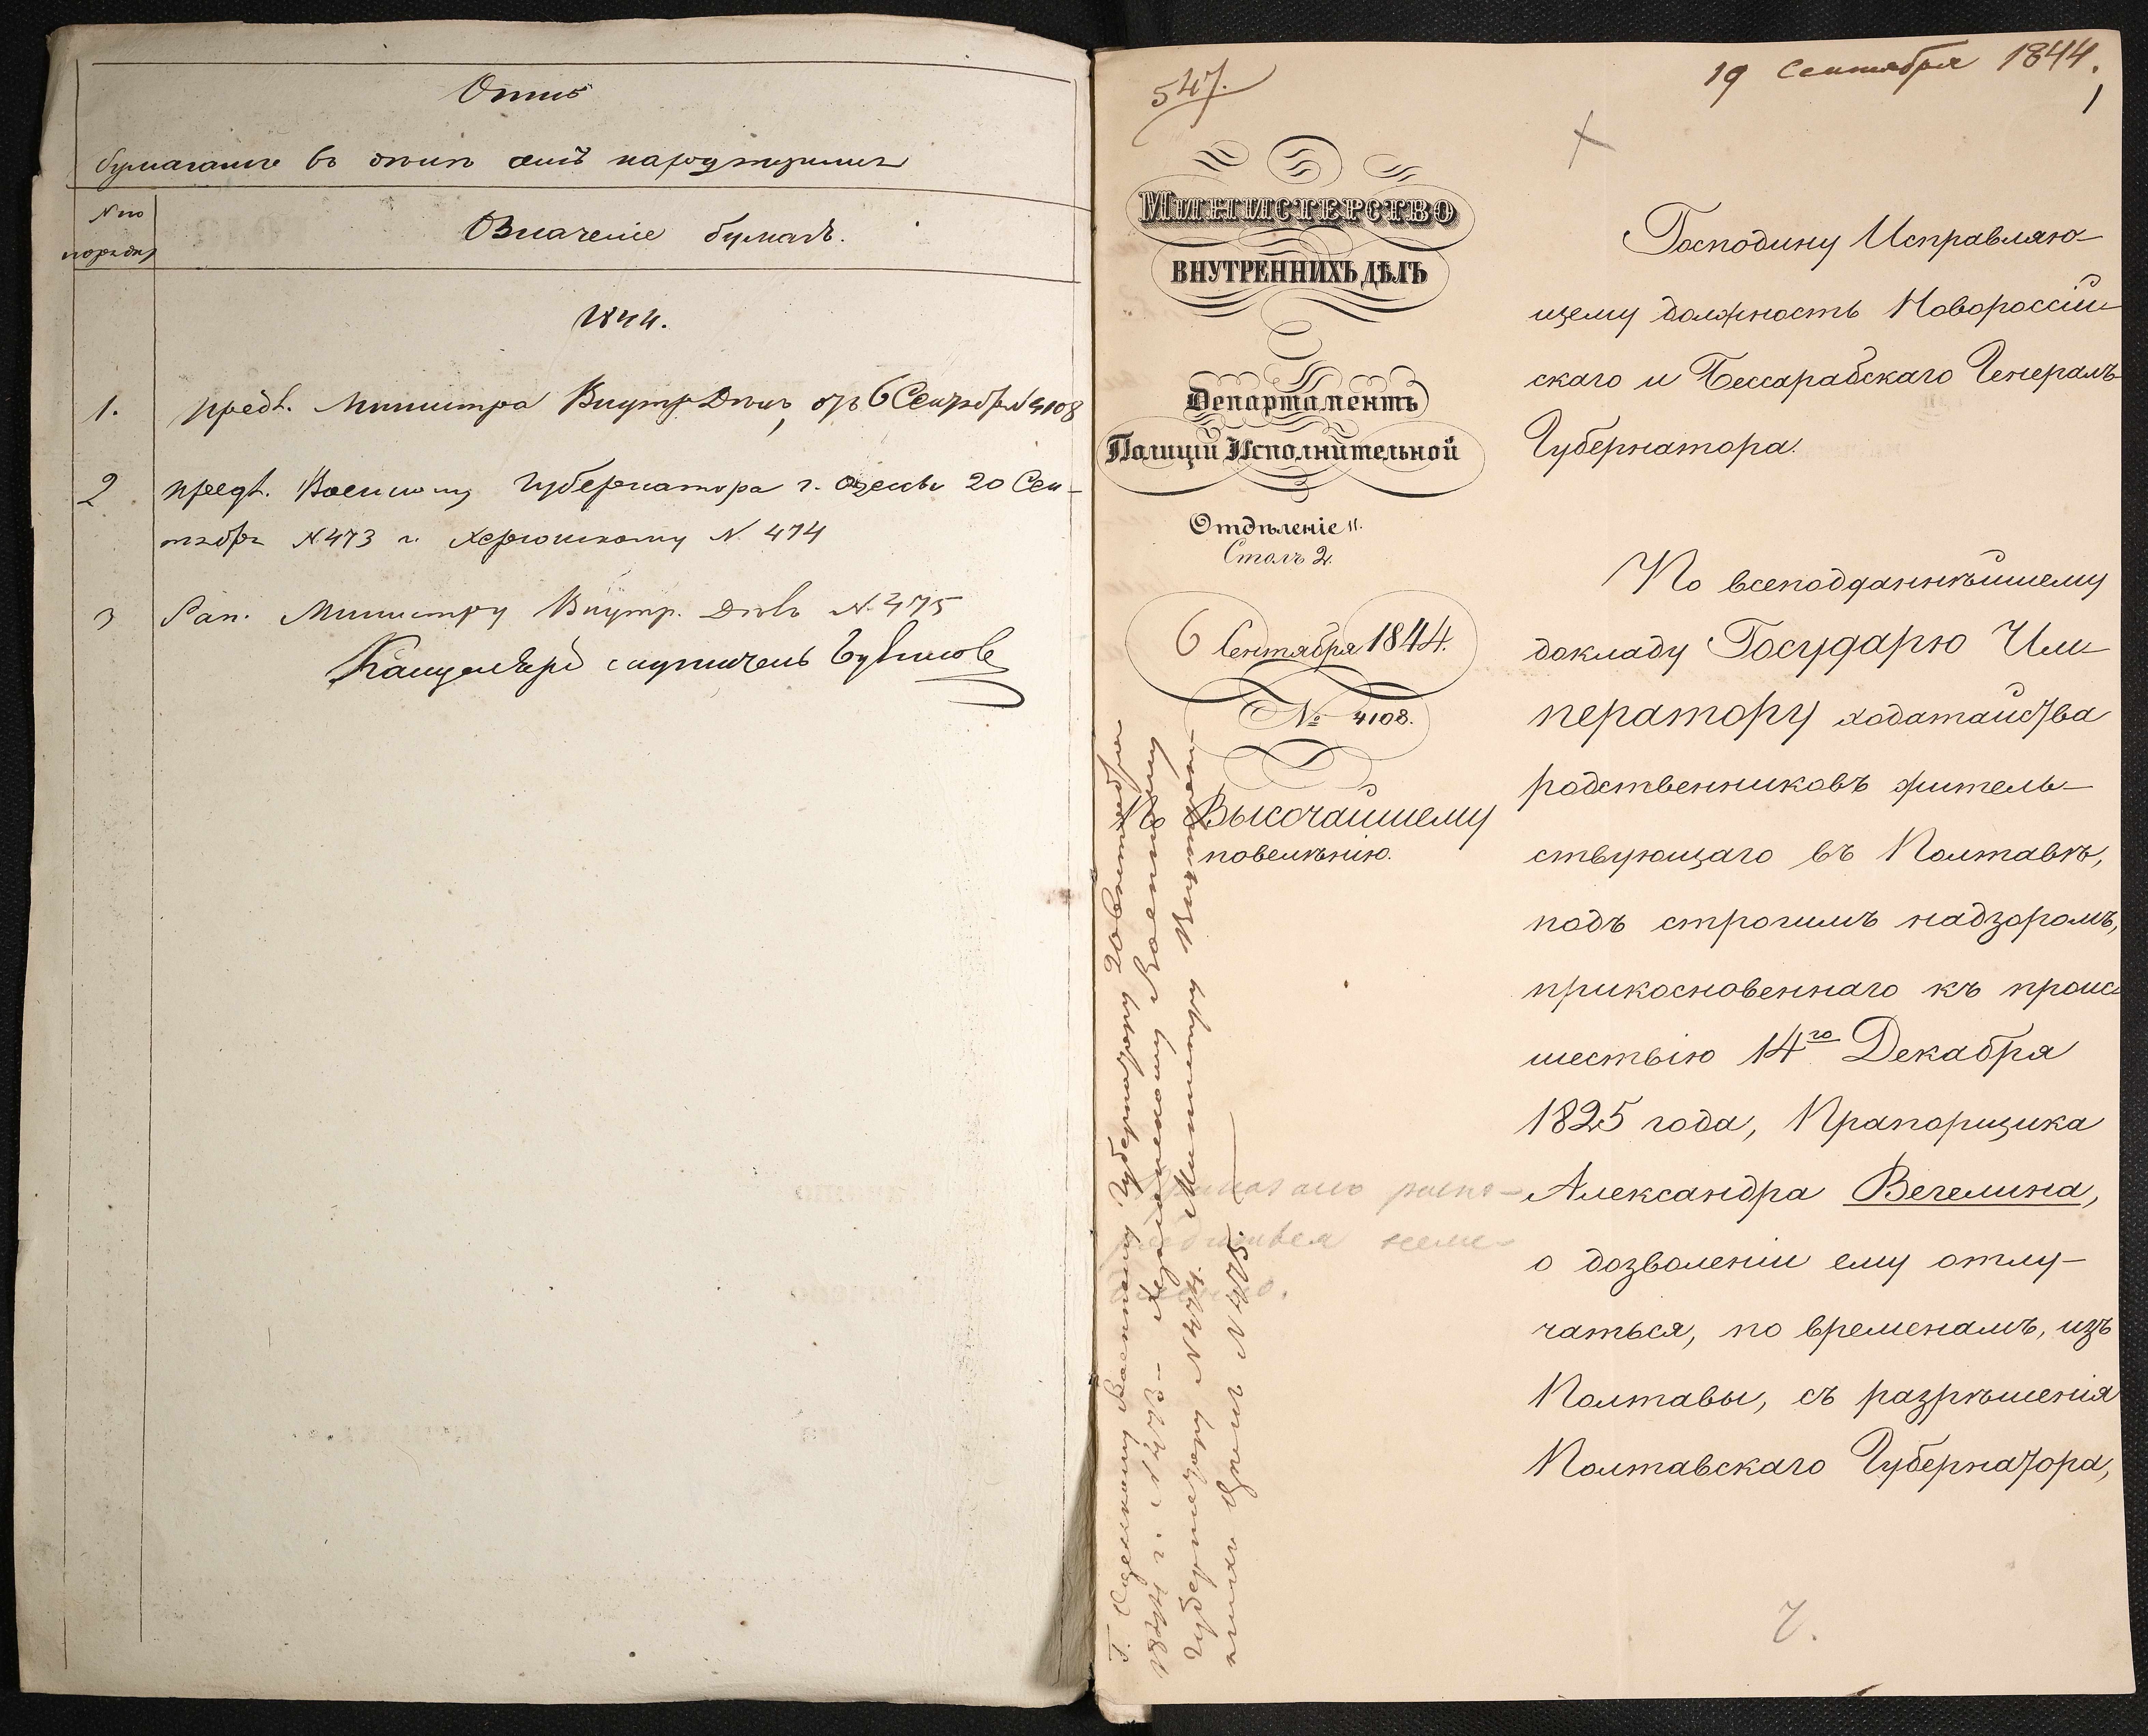 Опись
бумагамъ въ
№ по
порядку
Означеніе бумагъ.
1844.
1. предл. Министра Внутр. Дѣлъ, отъ 6 Сентября № 4108
2 предл. Военному Губернатору г. Одессы 20 Сен-
тября № 473 и Херсонскому № 474
3 Рап. Министру Внутр. Дѣлъ № 475
547.
19 Сентября 1844.
1
Министерство
ВНУТРЕННИХЪ ДѢЛЪ
Департаментъ
Полиціи Исполнительной
Отдѣленіе II.
Столъ 2.
6 Сентября 1844.
№ 4108.
По Высочайшему
повелѣнію.
Г. Одесскому Военному Губернатору 20 Сентября
1844 г. № 473 – Херсонскому Военному
Губернатору № 474. Министру Внутрен-
нихъ Дѣлъ № 475.
Господину Исправляю-
щему должность Новороссій-
скаго и Бессарабскаго Генералъ-
Губернатора.
По всеподданнѣйшему
докладу Государю Им-
ператору ходатайства
родственниковъ житель-
ствующаго въ Полтавѣ,
подъ строгимъ надзоромъ,
прикосновеннаго къ проис-
шествію 14го Декабря
1825 года, Прапорщика
Александра Вегелина,
о дозволеніи ему отлу-
чаться, по временамъ, изъ
Полтавы, съ разрѣшенія
Полтавскаго Губернатора,